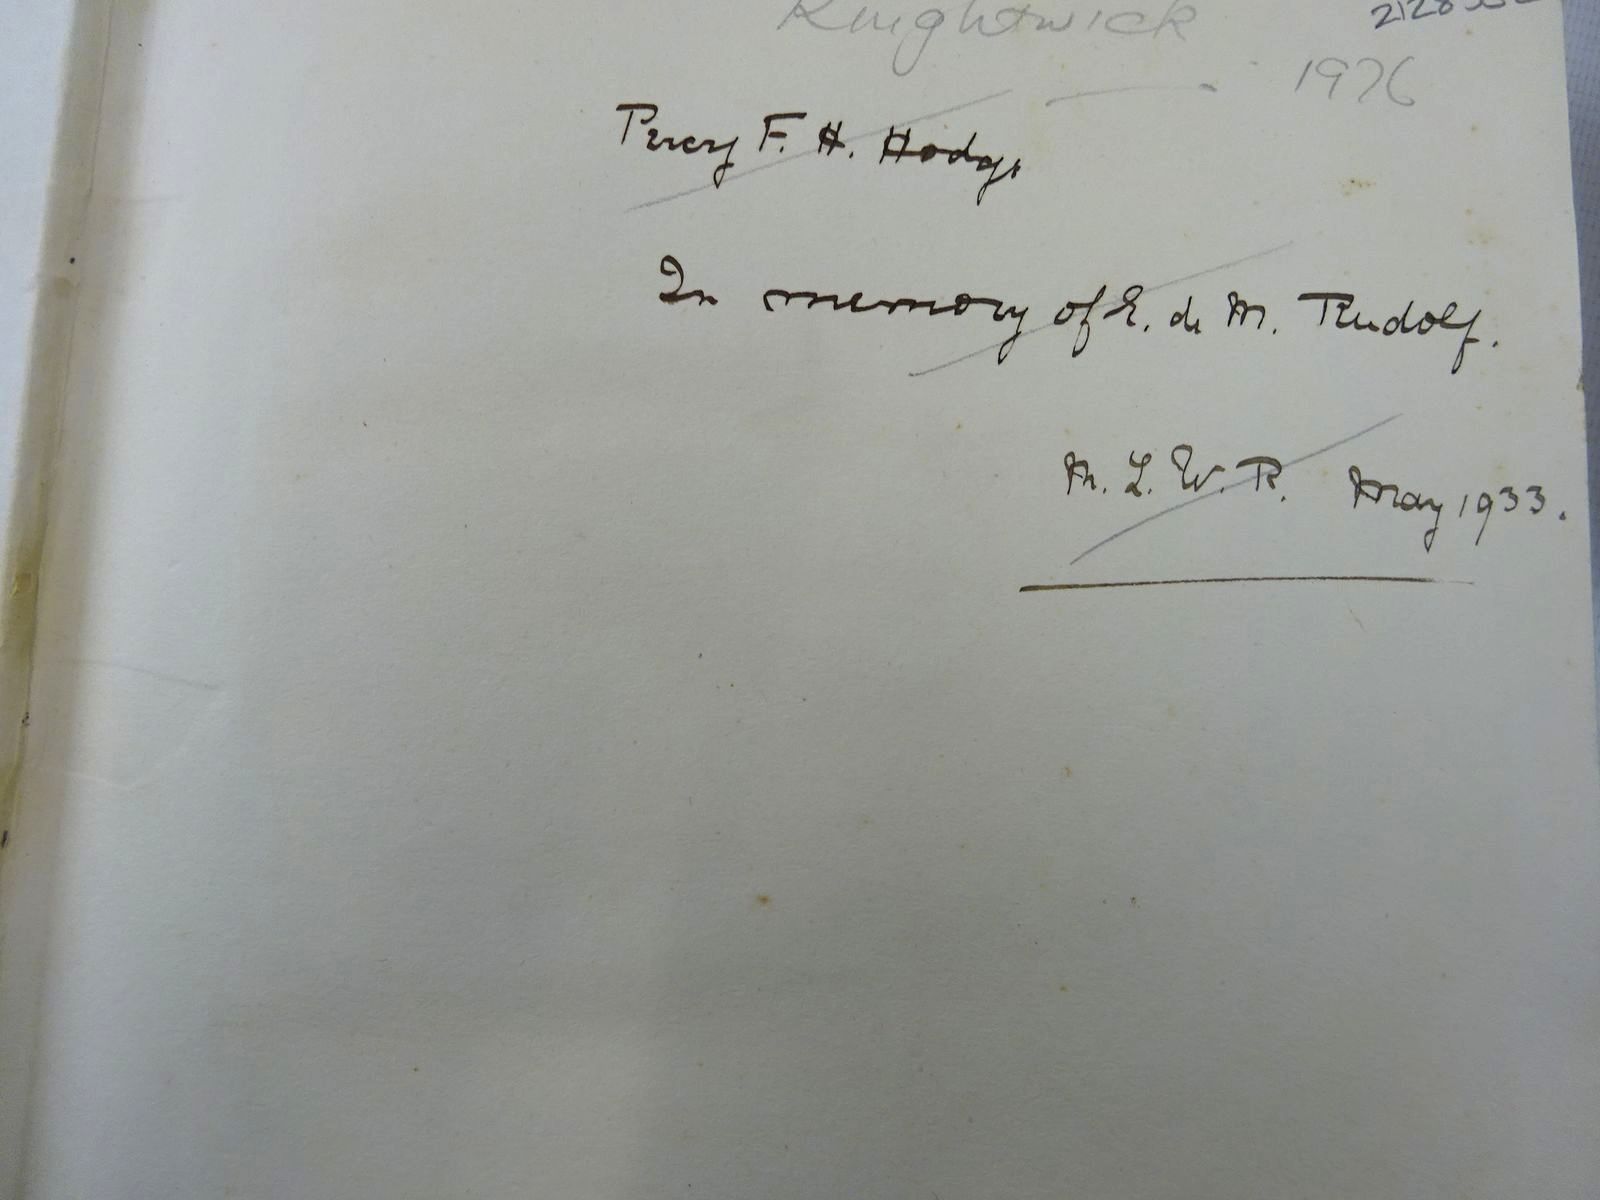 Knightwick
1976
Percy F. H. Hodge
In memory of E. de M. Rudolf.
M. L. W. R. May 1933.